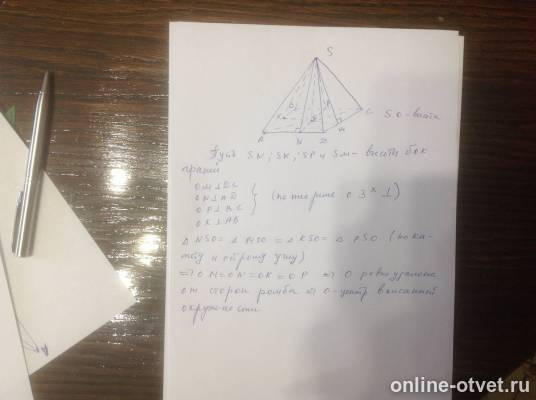 S
B
K
P
C
A
N
D
M
SO - высота
Пусть SN; SK; SP и SM - высоты бок
граней
OM⊥DC
ON⊥AD
OP⊥BC
OK⊥AB
(по теореме о 3ˣ ⊥)
△ NSO = △ MSO = △ KSO = △ PSO (по ка-
тету и острому углу)
⇒ OM=ON=OK=OP ⇒ O равноудалена
от сторон ромба ⇒ O-центр вписанной
окружности
online-otvet.ru